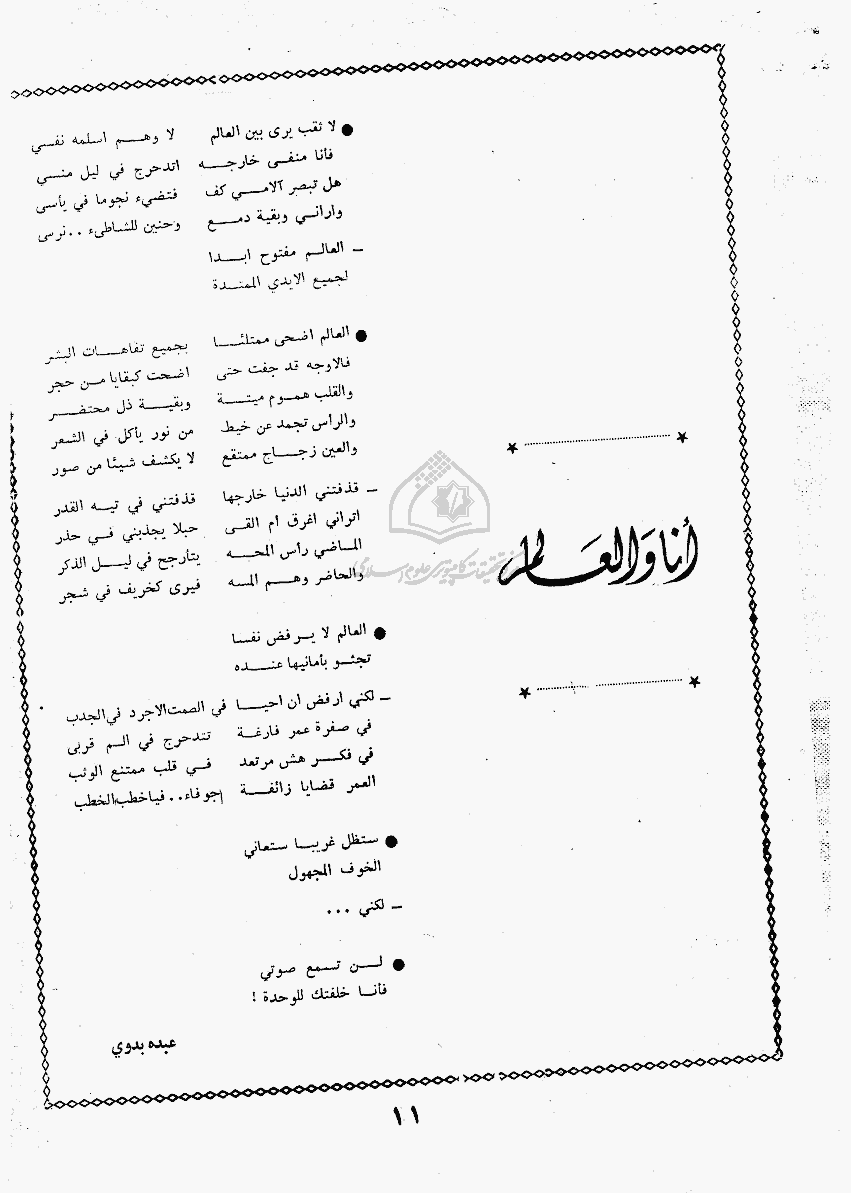 أنا وَالعَالم
● لا ثقب يرى بين العالم لا وهم اسلمه نفسي
فأنا منفى خارجه اتدحرج في ليل منسي
هل تبصر آلامي كف فتضيء نجوما في يأسى
واراني وبقية دمع وحنين للشاطىء .. نرسى
– العالم مفتوح ابدا
لجميع الايدي الممتدة
● العالم اضحى ممتلئا بجميع تفاهات البشر
فالاوجه قد جفت حتى اضحت كبقايا من حجر
والقلب هموم ميتة وبقية ذل محتضر
والرأس تجمد عن خيط من نور يأكل في الشعر
والعين زجاج ممتقع لا يكشف شيئا من صور
– قذفتني الدنيا خارجها قذفتني في تيه القدر
اتراني اغرق ام القى حبلا يجذبني في حذر
الماضي رأس المحه يتأرجح في ليل الذكر
والحاضر وهم المسه فيرى كخريف في شجر
● العالم لا يرفض نفسا
تجثو بأمانيها عنده
– لكني ارفض ان احيا في الصمت الاجرد في الجدب
في صفرة عمر فارغة تتدحرج في الم قربى
في فكر هش مرتعد في قلب ممتنع الوثب
العمر قضايا زائفة جوفاء .. فياخطب الخطب
● ستظل غريبا ستعاني
الخوف المجهول
– لكني ...
● لن تسمع صوتي
فأنا خلفتك للوحدة !
عبده بدوي
١١